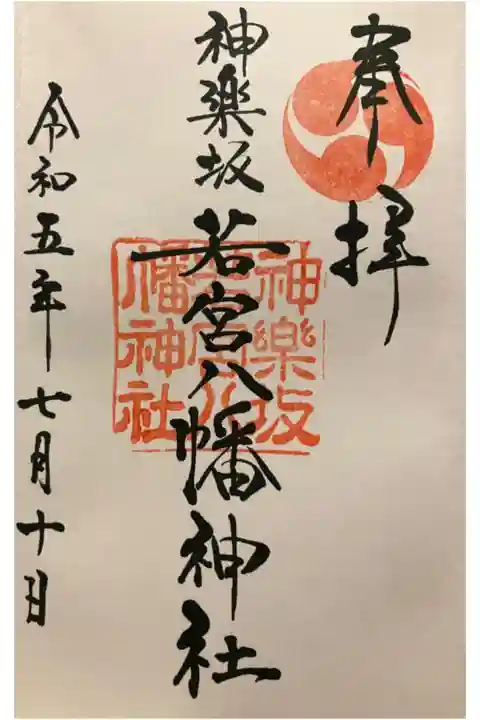 奉拝
神楽坂
若宮八幡神社
神樂坂
若宮八
幡神社
令和五年七月十日